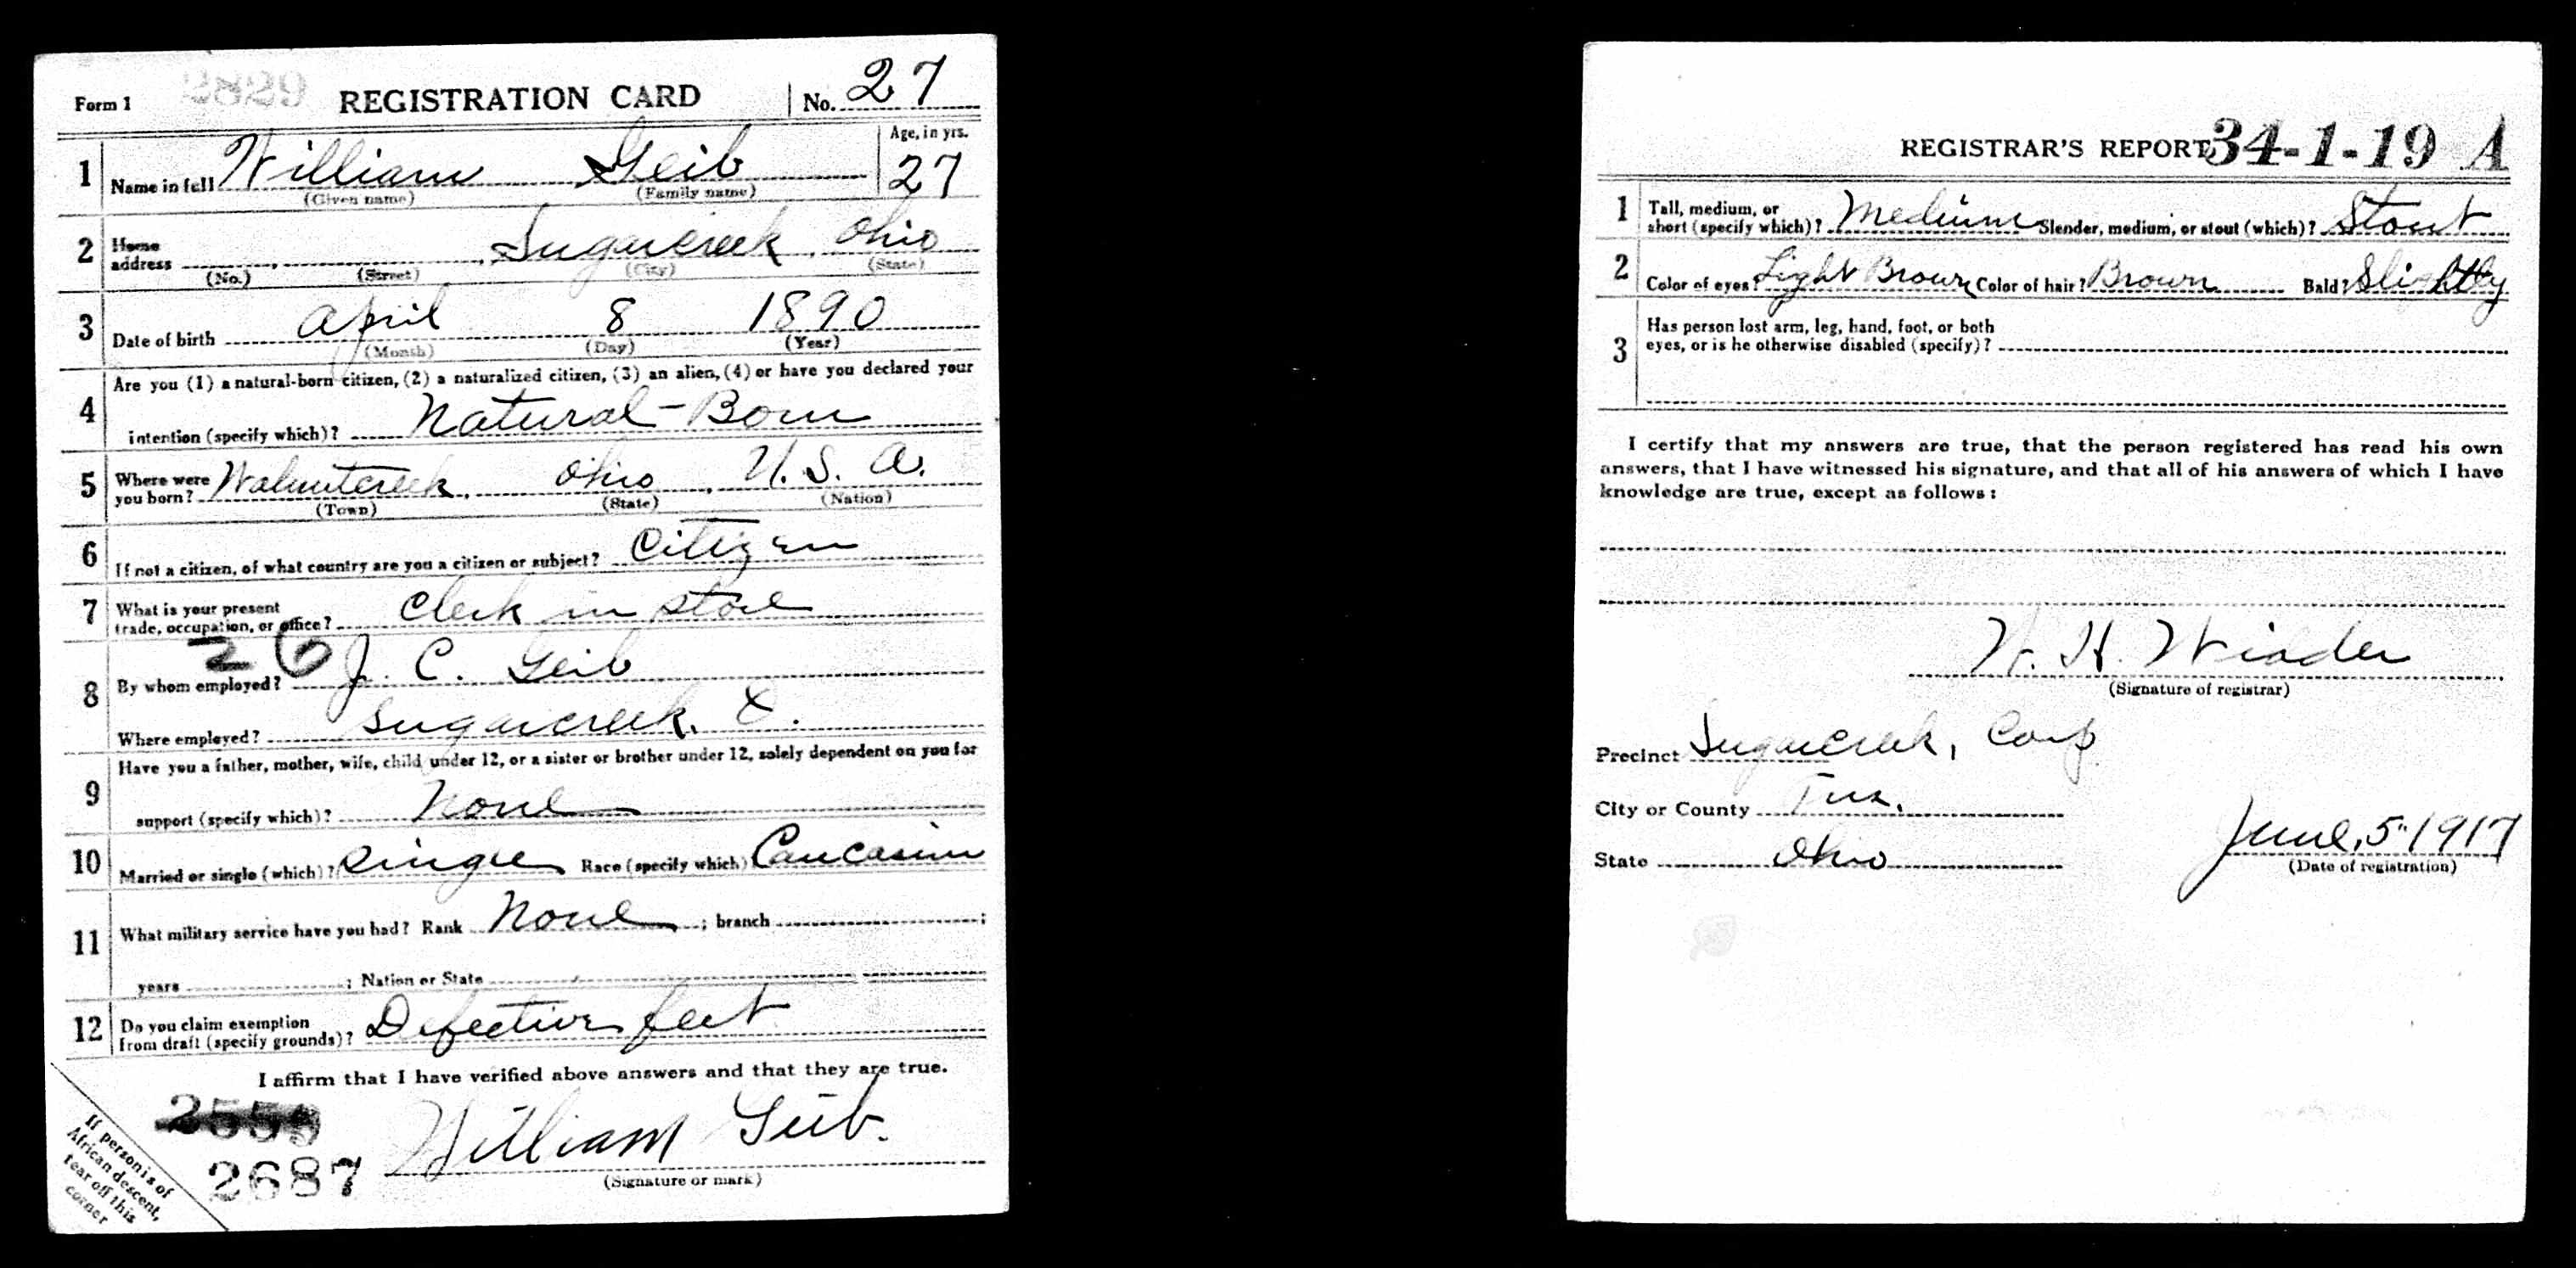 Form 1 2829 REGISTRATION CARD No. 27
Age, in yrs.
1 Name in full William Geib 27
(Given name) (Family name)
2 Home address Sugarcreek, Ohio
(No.) (Street) (City) (State)
3 Date of birth April 8 1890
(Month) (Day) (Year)
Are you (1) a natural-born citizen, (2) a naturalized citizen, (3) an alien, (4) or have you declared your
4 intention (specify which)? Natural-Born
5 Where were you born? Walnutcreek, Ohio, U.S.A.
(Town) (State) (Nation)
6 If not a citizen, of what country are you a citizen or subject? Citizen
7 What is your present trade, occupation, or office? Clerk in store
26
8 By whom employed? J. C. Geib
Where employed? Sugarcreek, O.
Have you a father, mother, wife, child under 12, or a sister or brother under 12, solely dependent on you for
9 support (specify which)? None
10 Married or single (which)? Single Race (specify which) Caucasian
11 What military service have you had? Rank None ; branch ;
years ; Nation or State
12 Do you claim exemption from draft (specify grounds)? Defective feet
I affirm that I have verified above answers and that they are true.
2687 William Geib.
(Signature or mark)
If person is of
African descent,
tear off this
corner
REGISTRAR'S REPORT 34-1-19 A
1 Tall, medium, or short (specify which)? Medium Slender, medium, or stout (which)? Stout
2 Color of eyes? Light Brown Color of hair? Brown Bald? Slightly
3 Has person lost arm, leg, hand, foot, or both
eyes, or is he otherwise disabled (specify)?
I certify that my answers are true, that the person registered has read his own
answers, that I have witnessed his signature, and that all of his answers of which I have
knowledge are true, except as follows:
W. H.
(Signature of registrar)
Precinct Sugarcreek, Corp.
City or County Tus.
State Ohio June, 5" 1917
(Date of registration)